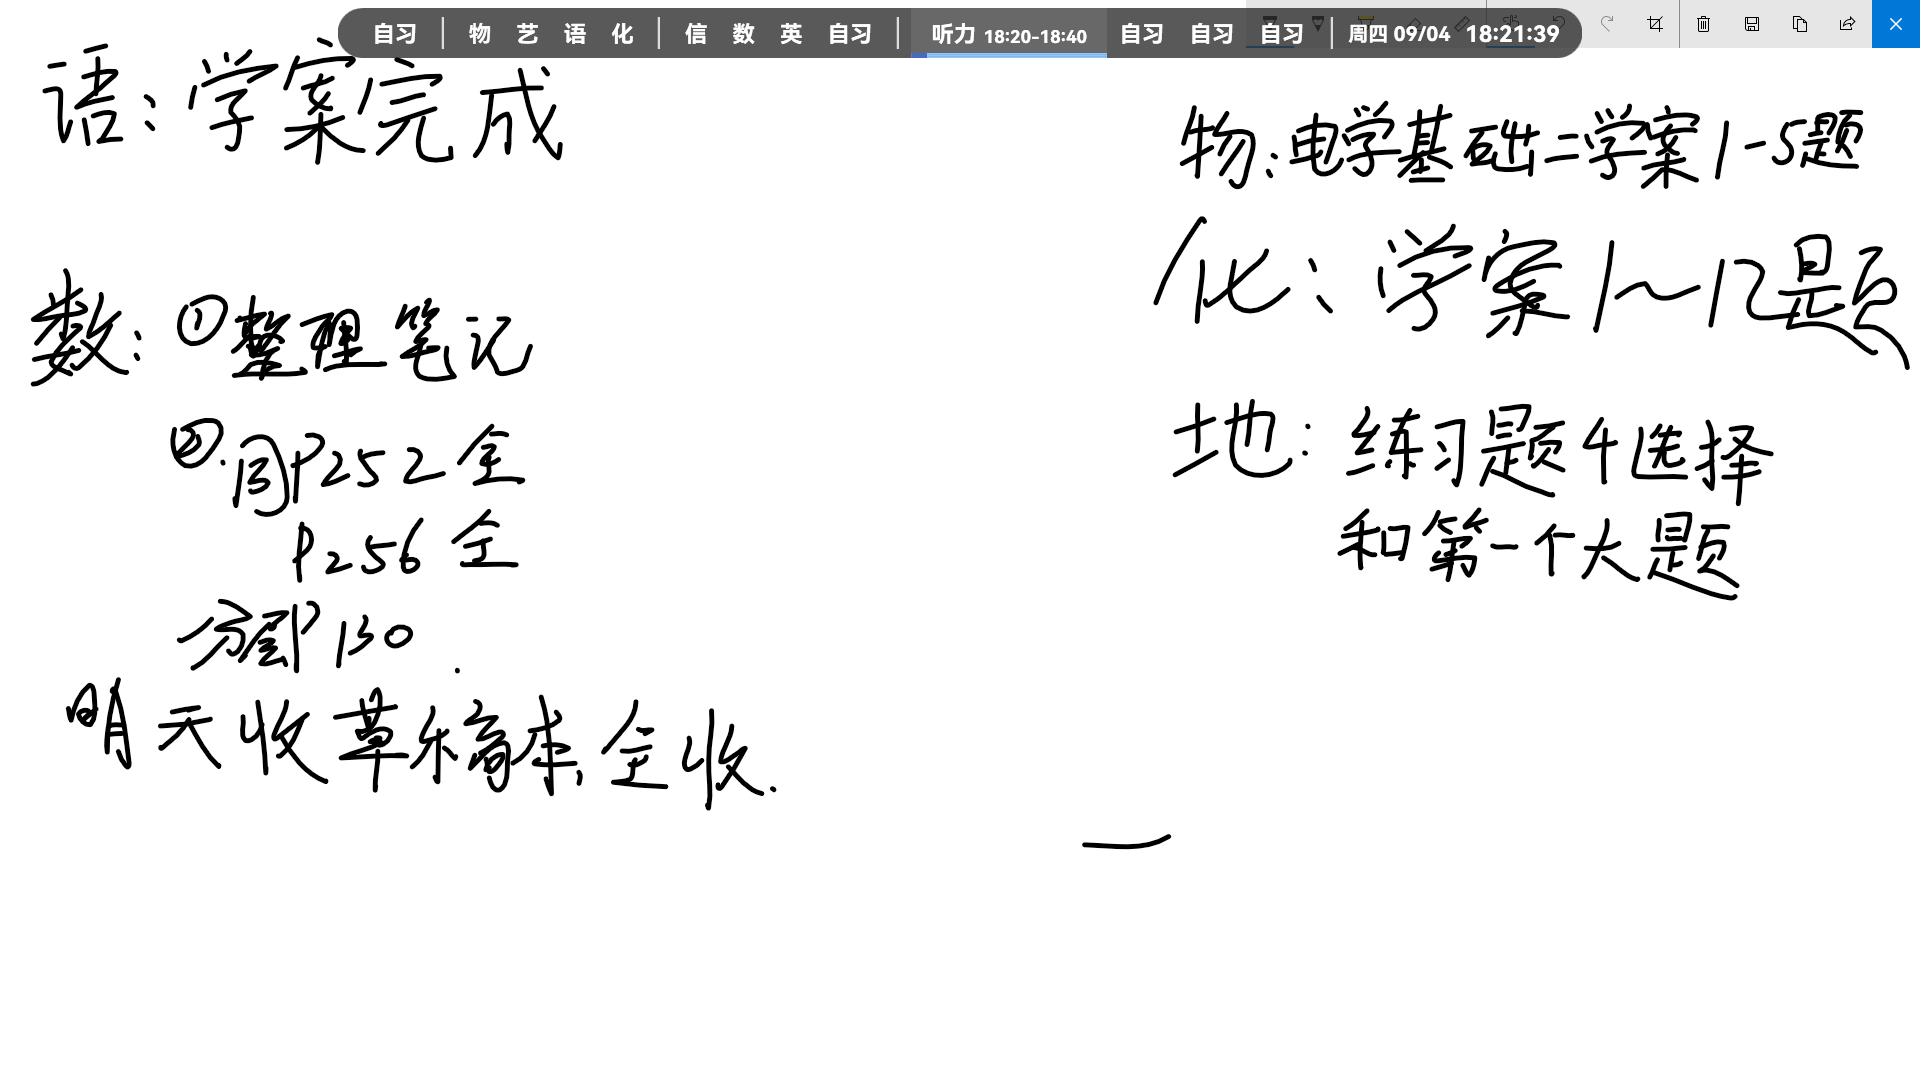 自习 | 物 艺 语 化 | 信 数 英 自习 | 听力 18:20-18:40 自习 自习 自习 | 周四 09/04 18:21:39
语:学案完成
数:①整理笔记
②.同P252全
P256全
分层P130
明天收草稿本,全收.
物:电学基础二学案1-5题
化:学案1~12题
地:练习题4选择
和第一个大题